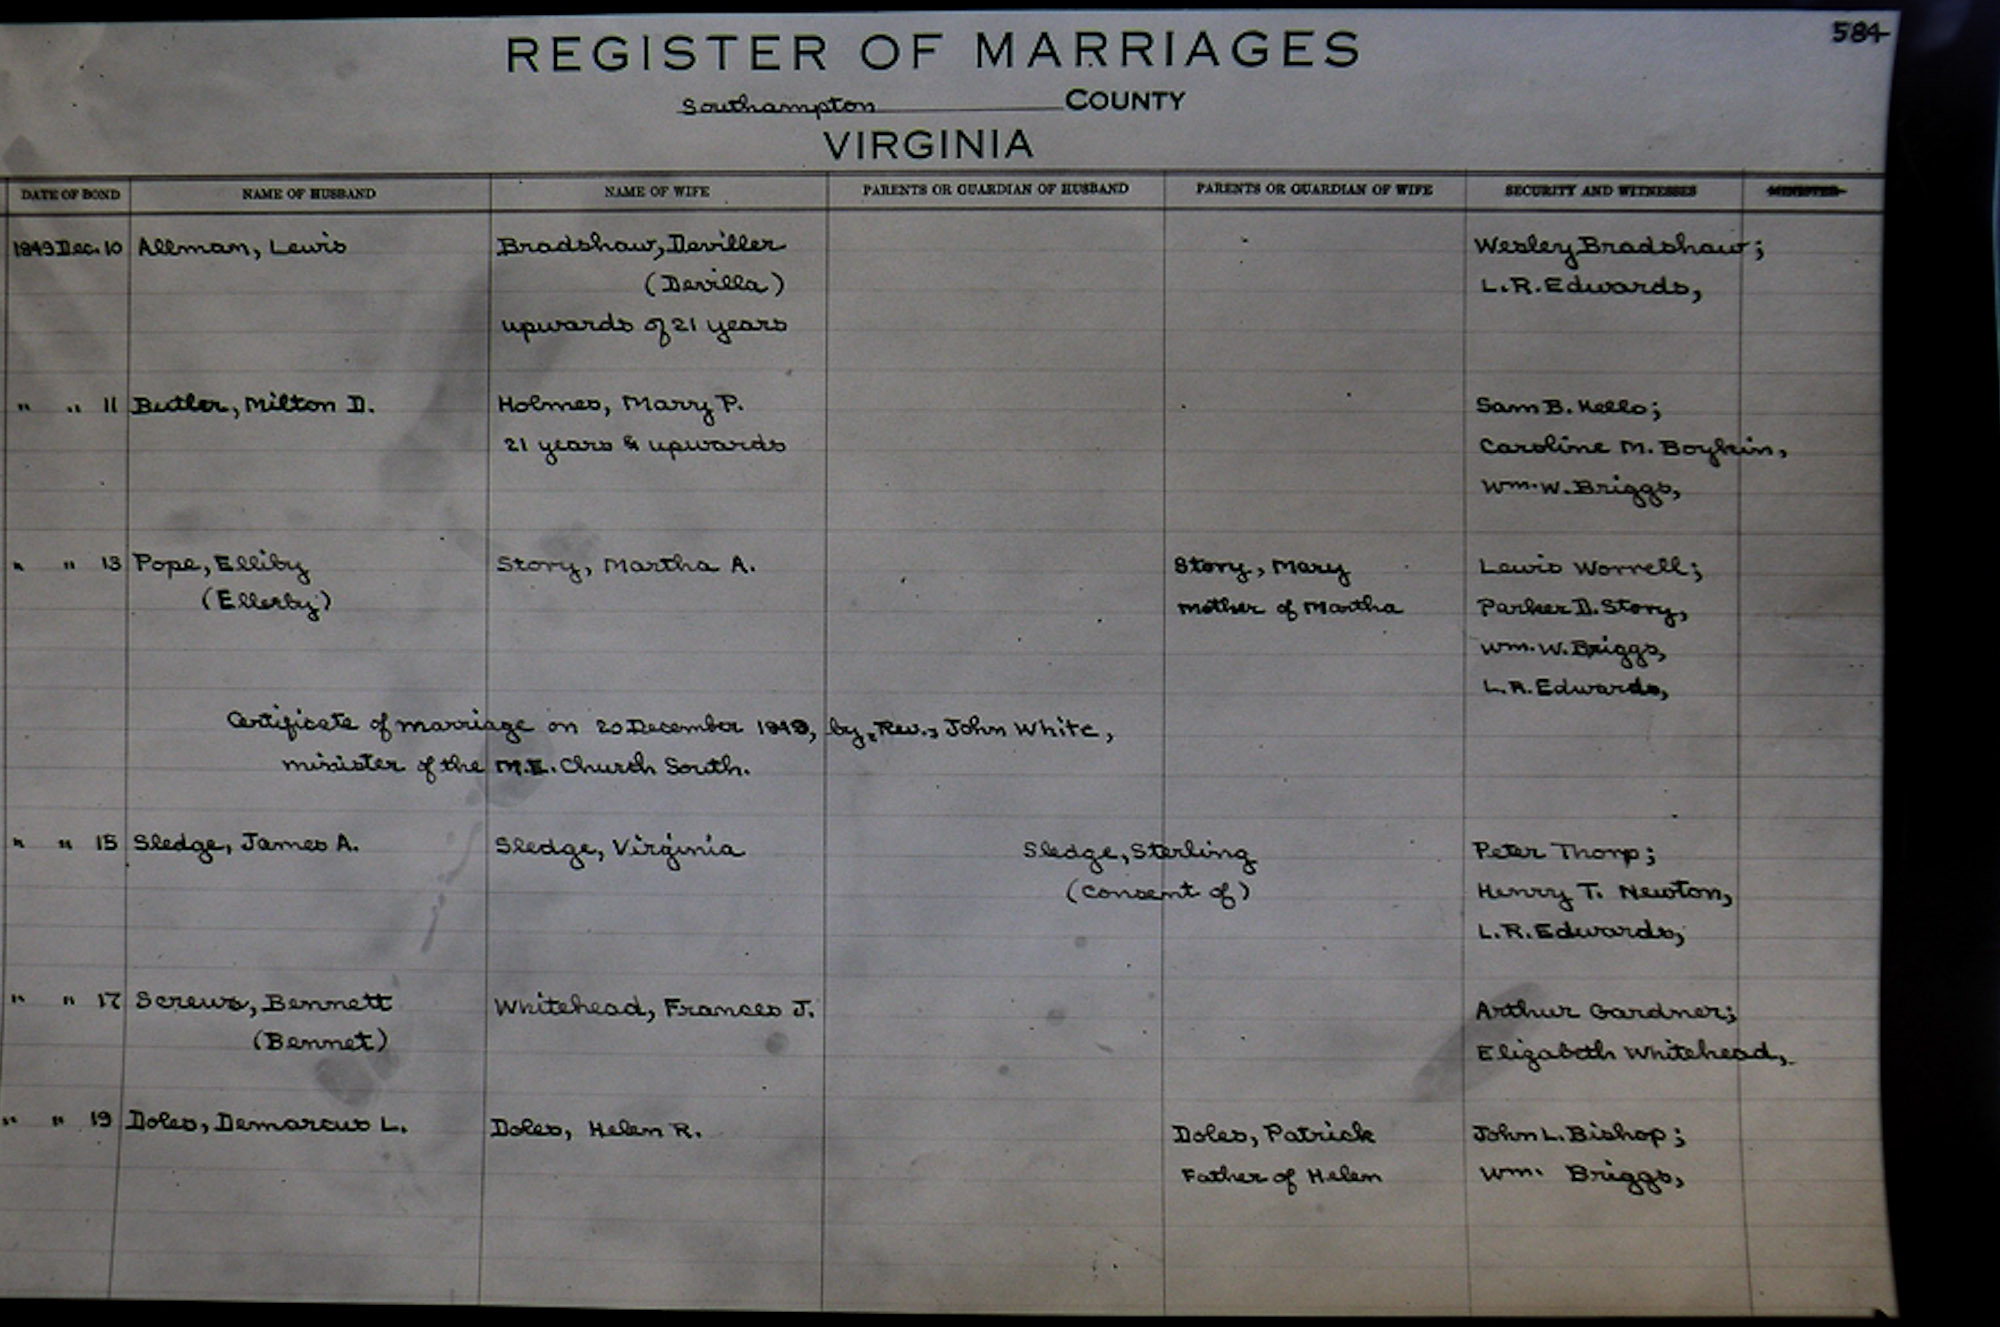 584
REGISTER OF MARRIAGES
Southampton COUNTY
VIRGINIA
DATE OF BOND NAME OF HUSBAND NAME OF WIFE PARENTS OR GUARDIAN OF HUSBAND PARENTS OR GUARDIAN OF WIFE SECURITY AND WITNESSES MINISTER
1849 Dec. 10 Allman, Lewis Bradshaw, Deviller Wesley Bradshaw;
(Devilla) L.R. Edwards,
upwards of 21 years
" " 11 Butler, Milton D. Holmes, Mary P. Sam B. Kello;
21 years & upwards Caroline M. Boykin,
Wm. W. Briggs,
" " 13 Pope, Elliby Story, Martha A. Story, Mary Lewis Worrell;
(Ellerby) mother of Martha Parker D. Story,
Wm. W. Briggs,
L.R. Edwards,
Certificate of marriage on 20 December 1849, by, Rev., John White,
minister of the M.E. Church South.
" " 15 Sledge, James A. Sledge, Virginia Sledge, Sterling Peter Thorp;
(Consent of) Henry T. Newton,
L.R. Edwards,
" " 17 Screws, Bennett Whitehead, Frances J. Arthur Gardner;
(Bennet) Elizabeth Whitehead,
" " 19 Doles, Demarcus L. Doles, Helen R. Doles, Patrick John L. Bishop;
Father of Helen Wm. Briggs,